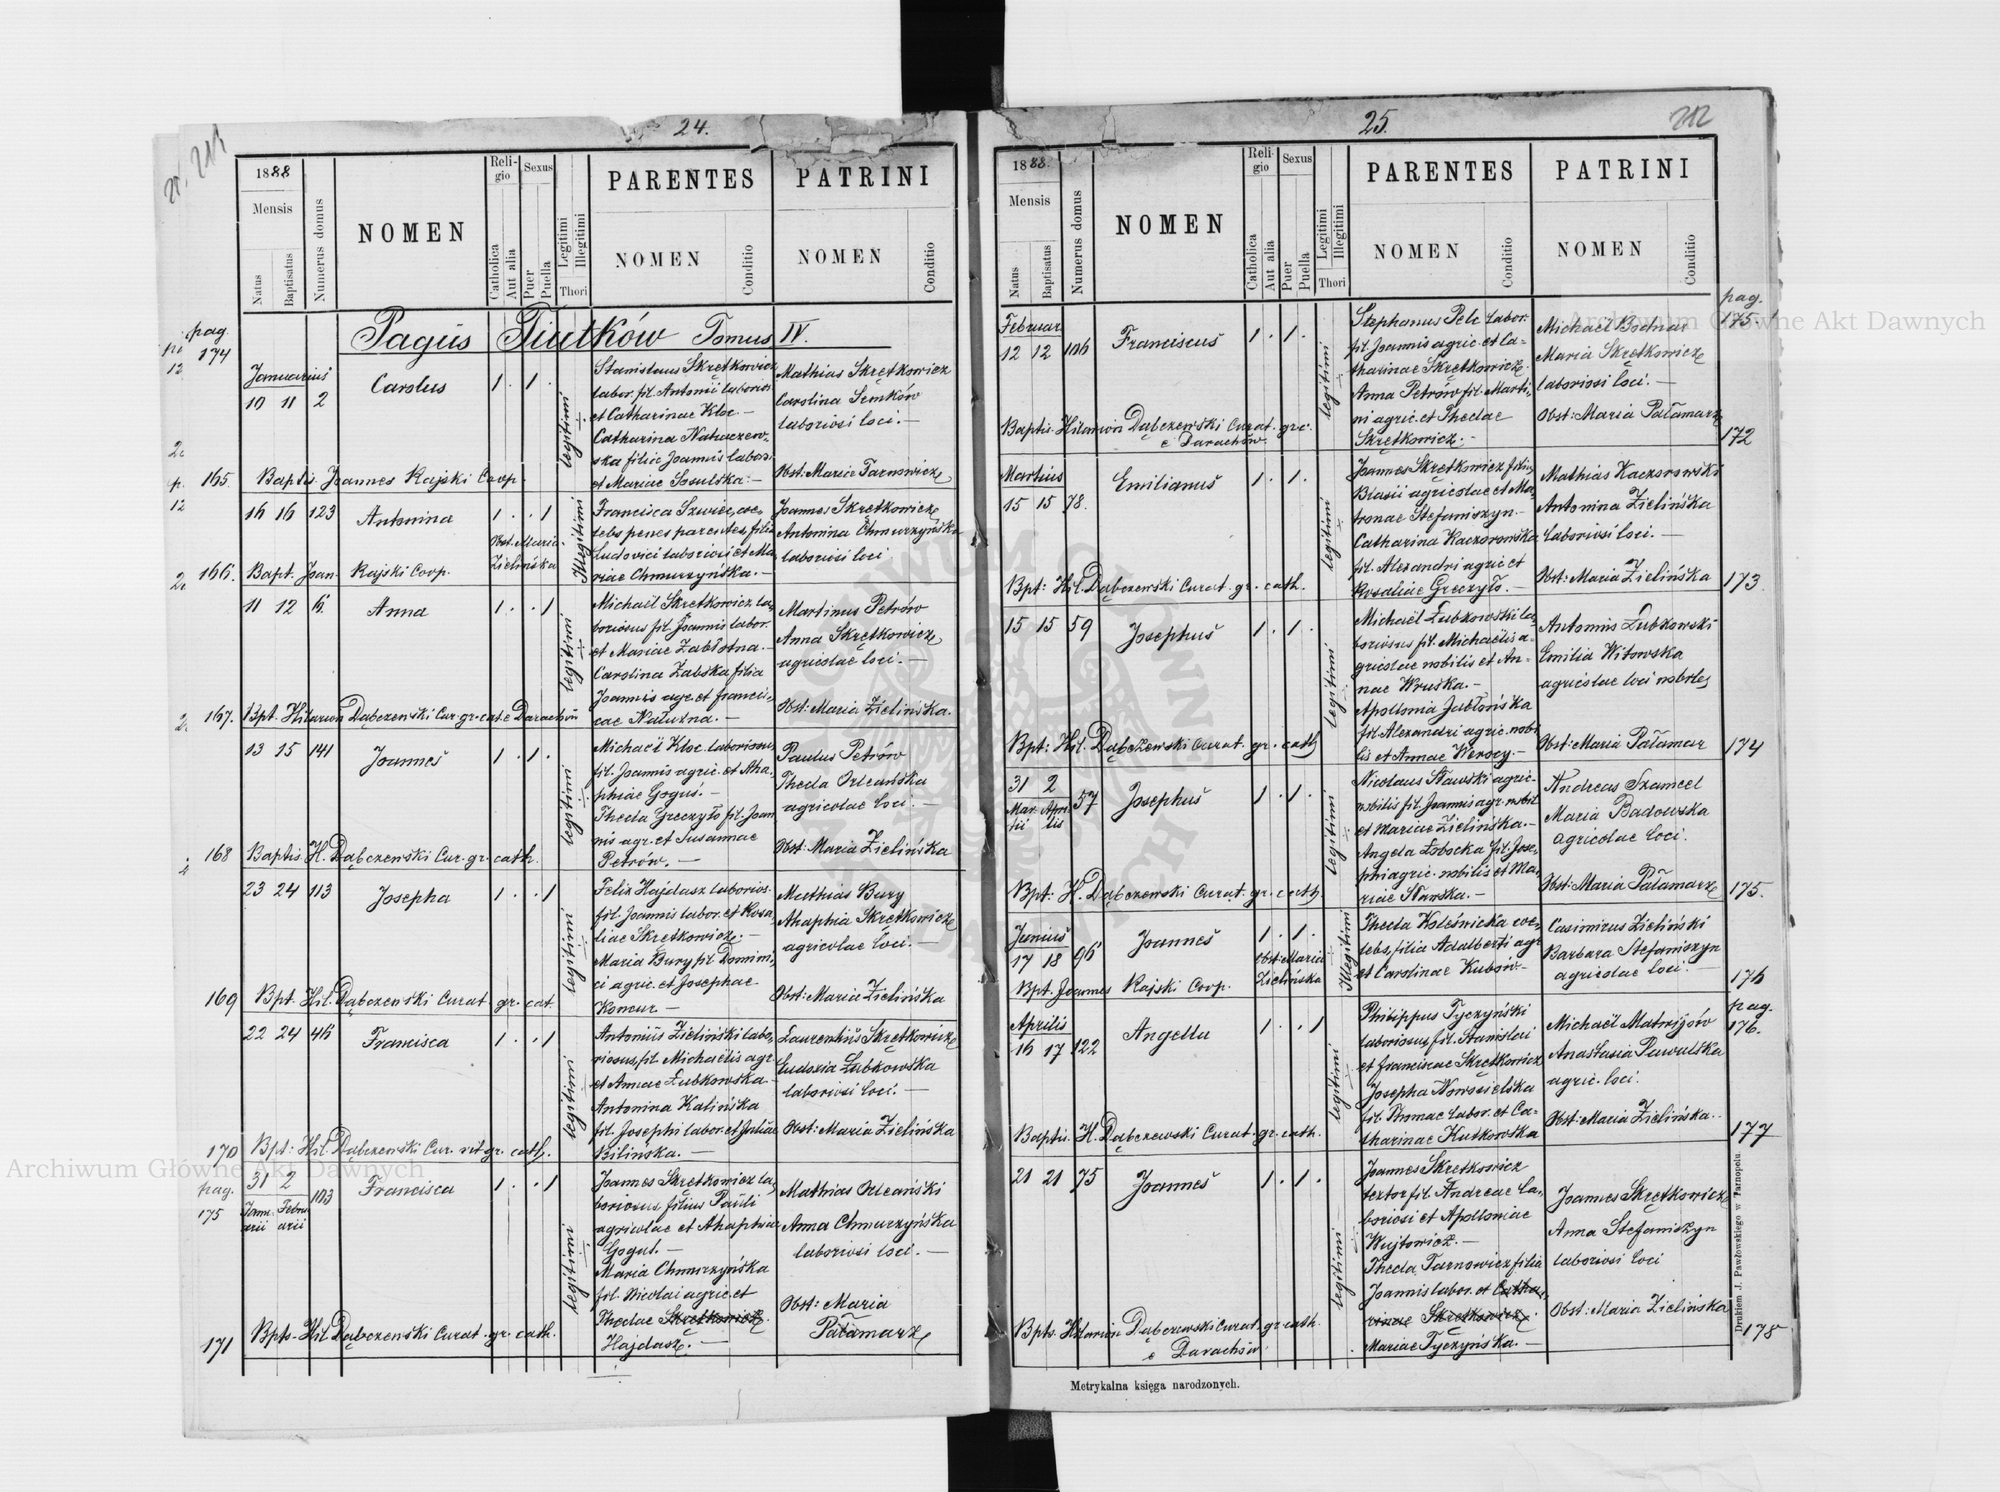 24.
211
1888
Mensis
Natus
Baptisatus
Numerus domus
NOMEN
Religio
Catholica
Aut alia
Sexus
Puer
Puella
Legitimi
Illegitimi
Thori
PARENTES
NOMEN
Conditio
PATRINI
NOMEN
Conditio
Pagus Tiutków Tomus IV.
pag.
174
Januarius
10 11 2
Carolus
1. 1.
legitimi
Stanislaus Skrętkowicz
labor. fil. Antonii laborios.
et Catharinae Kloc.—
Catharina Natraczew-
ska filia Joannis labor.
et Mariae Sosulska.—
Mathias Skrętkowicz
Carolina Semków
laboriosi loci.—
Obst: Maria Tarnowicz
165. Baptis. Joannes Rajski Coop.
16 16 123
Antonina
1. . 1
Obst. Maria
Zielińska
Illegitimi
Francisca Szwiec, coe-
lebs penes parentes, filia
Ludovici laboriosi et Ma-
riae Chmurzyńska.—
Joannes Skrętkowicz
Antonina Chmurzyńska
laboriosi loci
166. Bapt. Joan. Rajski Coop.
11 12 6
Anna
1. . 1
legitimi
Michaël Skrętkowicz la-
boriosus fil. Joannis labor.
et Mariae Zabłotna.—
Carolina Zabska filia
Joannis agr. et Francis-
cae Nałużna.—
Martinus Petrów
Anna Skrętkowicz
agricolae loci.—
Obst: Maria Zielińska.
167. Bpt. Hilarion Dąbczewski Cur. gr. cat. e Darachów
13 15 141
Joannes
1. 1.
legitimi
Michaël Kloc laboriosus,
fil. Joannis agric. et Aha-
phiae Goguś.—
Thecla Greczyło fil. Joan-
nis agr. et Susannae
Petrów.—
Paulus Petrów
Thecla Orleańska
agricolae loci.—
Obst: Maria Zielińska
168 Baptis H. Dąbczewski Cur. gr. cath.
23 24 113
Josepha
1. . 1
legitimi
Felix Hajdasz laborios.
fil. Joannis labor. et Rosa-
liae Skrętkowicz.—
Maria Bury fil. Domini-
ci agric. et Josephae
Komur—
Mathias Bury
Ahaphia Skrętkowicz
agricolae loci.—
Obst: Maria Zielińska
169 Bpt. Hil. Dąbczewski Curat gr. cat.
22 24 46
Francisca
1. . 1
legitimi
Antonius Zieliński labo-
riosus, fil. Michaëlis agr.
et Annae Łubkowska—
Antonina Kalińska
fil. Josephi labor. et Juliae
Bilińska.—
Laurentius Skrętkowicz
Eudoxia Łubkowska
laboriosi loci.—
Obst: Maria Zielińska
170 Bpt: Hil. Dąbczewski Cur. rit gr. cath.
pag.
175
31 2 103
Janu- Febru-
arii arii
Francisca
1. . 1
legitimi
Joannes Skrętkowicz la-
boriosus filius Pauli
agricolae et Ahaphiae
Gogul.—
Maria Chmurzyńska
fil. Nicolai agric. et
Theclae Skrętkowicz.
Hajdasz.—
Mathias Orleański
Anna Chmurzyńska
laboriosi loci.—
Obst: Maria
Pałamarz
171 Bpts. Hil. Dąbczewski Curat. gr. cath.
25.
212
1888.
Mensis
Natus
Baptisatus
Numerus domus
NOMEN
Religio
Catholica
Aut alia
Sexus
Puer
Puella
Legitimi
Illegitimi
Thori
PARENTES
NOMEN
Conditio
PATRINI
NOMEN
Conditio
pag.
175
Februar
12 12 106
Franciscus
1. 1.
legitimi
Stephanus Pelc labor.
fil. Joannis agric. et Ca-
tharinae Skrętkowicz.
Anna Petrów fil. Marti-
ni agric. et Theclae
Skrętkowicz.—
Michaël Bodnar
Maria Skrętkowicz
laboriosi loci.—
Obst: Maria Pałamarz
Baptis. Hilarion Dąbczewski Curat. grc.
e Darachów
172
Martius
15 15 78.
Emilianus
1. 1.
legitimi
Joannes Skrętkowicz filius
Blasii agricolae et Ma-
tronae Stefaniszyn.—
Catharina Kaczorowska
fil. Alexandri agric et
Rosaliae Greczyło.—
Mathias Kaczorowski
Antonina Zielińska
laboriosi loci.—
Obst: Maria Zielińska
Bpt: Hil. Dąbczewski Curat. gr. cath.
173
15 15 59
Josephus
1. 1.
legitimi
Michaël Łubkowski la-
boriosus fil. Michaëlis a-
gricolae nobilis et An-
nae Wruska.—
Apollonia Jabłońska
fil. Alexandri agric. nobi
lis et Annae Werscy.—
Antonius Łubkowski
Emilia Witowska
agricolae loci nobiles
Obst: Maria Pałamar
Bpt: Hil. Dąbczewski Curat. gr. cath
174
31 2 57
Mar- Apri-
tii lis
Josephus
1. 1.
legitimi
Nicolaus Sławski agric.
nobilis fil. Joannis agr. nobil.
et Mariae Zielińska.—
Angela Łobocka fil. Jose-
phi agric. nobilis et Ma-
riae Sławska.—
Andreas Szamcel
Maria Badowska
agricolae loci.
Obst: Maria Pałamarz
Bpt. H. Dąbczewski Curat. gr. cath.
175.
Junius
17 18 96
Joannes
1. 1.
Obst: Maria
Zielińska
Illegitimi
Thecla Koleśnicka coe-
lebs, filia Adalberti agr
et Carolinae Kubów—
Casimirus Zieliński
Barbara Stefaniszyn
agricolae loci.—
Bpt. Joannes Rajski Coop.
176
pag.
176.
Aprilis
16 17 122
Angella
1. . 1
legitimi
Philippus Tyczyński
laboriosus, fil. Stanislai
et Franciscae Skrętkowicz
Josepha Nowosielska
fil. Thomae labor. et Ca-
tharinae Kutkowska
Michaël Matwijów
Anastasia Pawulska
agric. loci.
Obst: Maria Zielińska.
Baptis. H. Dąbczewski Curat. gr. cath.
177
21 21 75
Joannes
1. 1.
legitimi
Joannes Skrętkowicz
textor fil. Andreae la-
boriosi et Apolloniae
Wujtowicz.—
Thecla Tarnowicz filia
Joannis labor. et Catha-
rinae Skrętkowicz.
Mariae Tyczyńska.—
Joannes Skrętkowicz
Anna Stefaniszyn
laboriosi loci
Obst: Maria Zielińska
Bpts. Hilarion Dąbczewski Curat. gr. cath.
e Darachów
178
Metrykalna księga narodzonych.
Drukiem J. Pawłowskiego w Tarnopolu.
Archiwum Główne Akt Dawnych
Archiwum Główne Akt Dawnych